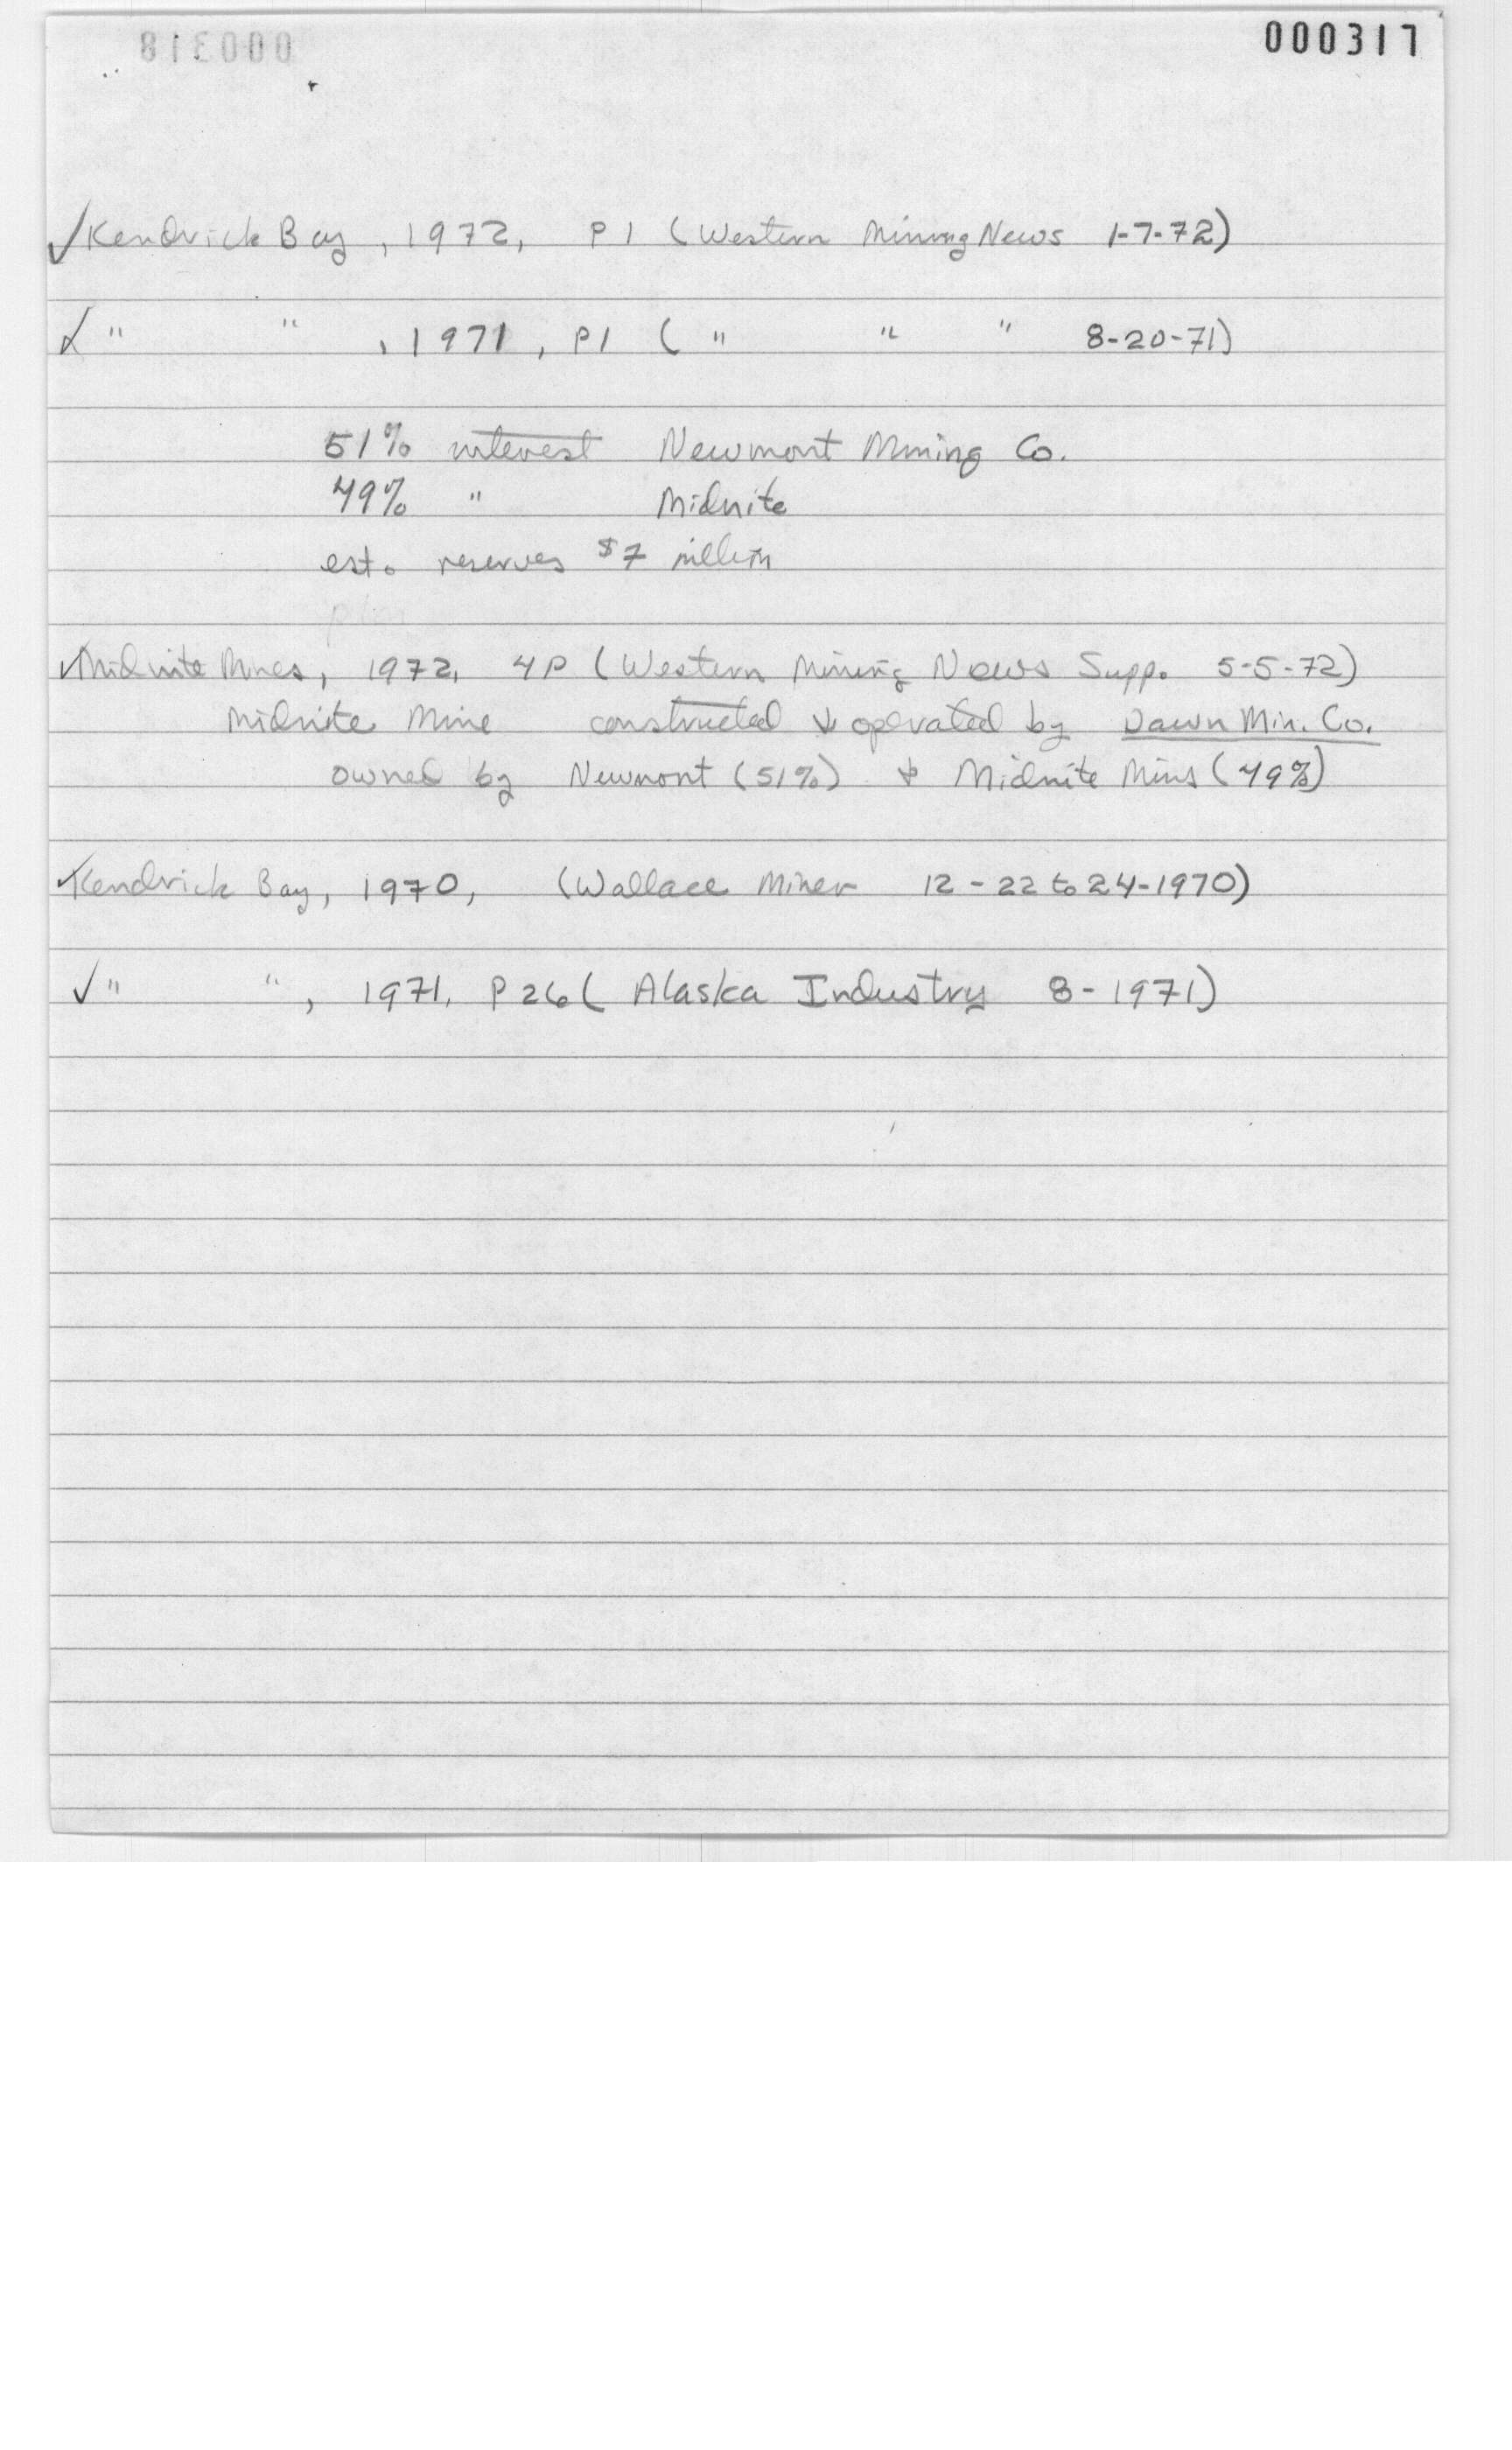 000317
000318
✓Kendrick Bay, 1972, P 1 (Western Mining News 1-7-72)
✓ " " , 1971, P1 ( " " " 8-20-71)
51% interest Newmont Mining Co.
49% " Midnite
est. reserves $7 million
✓Midnite Mines, 1972, 4P (Western Mining News Supp. 5-5-72)
Midnite Mine constructed & operated by Dawn Min. Co.
owned by Newmont (51%) & Midnite Mins (49%)
✓Kendrick Bay, 1970, (Wallace Miner 12-22 to 24-1970)
✓ " " , 1971, P 26 ( Alaska Industry 8-1971)